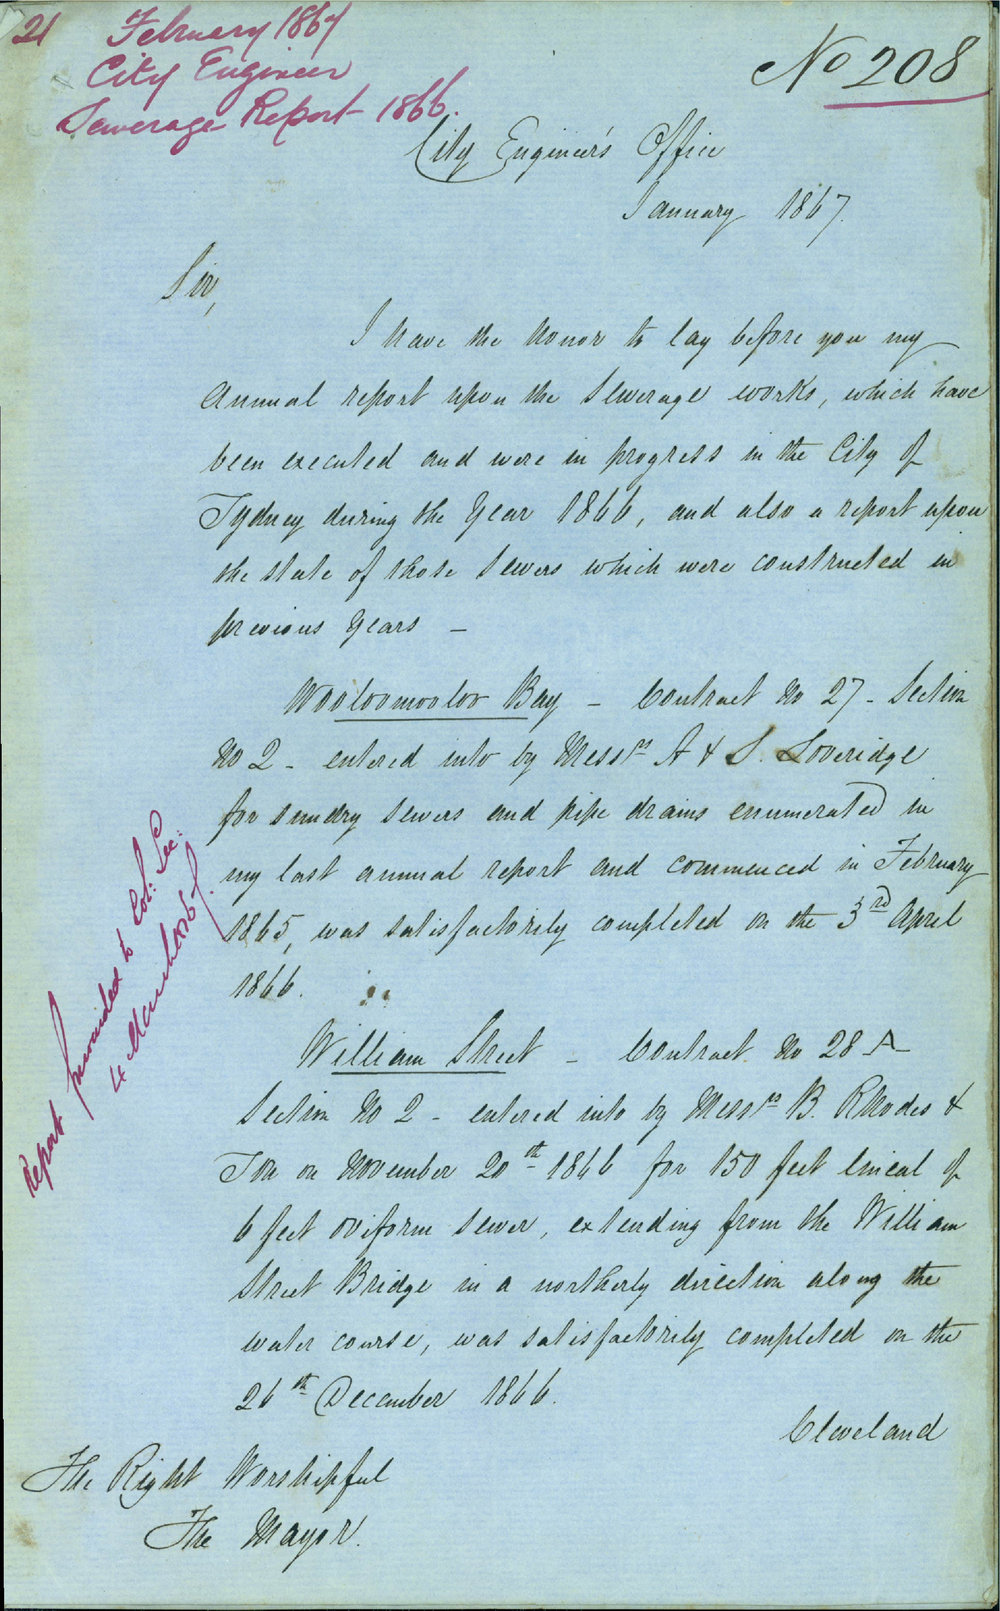 21 February 1867
City Engineer
Sewerage Report 1866.
No 208
City Engineer's Office
January 1867.
Sir,
I have the honor to lay before you my
Annual report upon the Sewerage works, which have
been executed and were in progress in the City of
Sydney during the Year 1866, and also a report upon
the state of those Sewers which were constructed in
previous Years —
Wooloomooloo Bay — Contract No 27 - Section
No 2 - entered into by Messrs A & S. Loveridge
for sundry sewers and pipe drains enumerated in
my last annual report and commenced in February
1865, was satisfactorily completed on the 3rd April
1866.
William Street — Contract No 28 A
Section No 2 - entered into by Messrs B. Rhodes &
Son on November 20th 1866 for 150 feet lineal of
6 feet oviform sewer, extending from the William
Street Bridge in a northerly direction along the
water course, was satisfactorily completed on the
26th December 1866.
Cleveland
The Right Worshipful
The Mayor.
Report forwarded to Col: Sec:
4 March 1867.